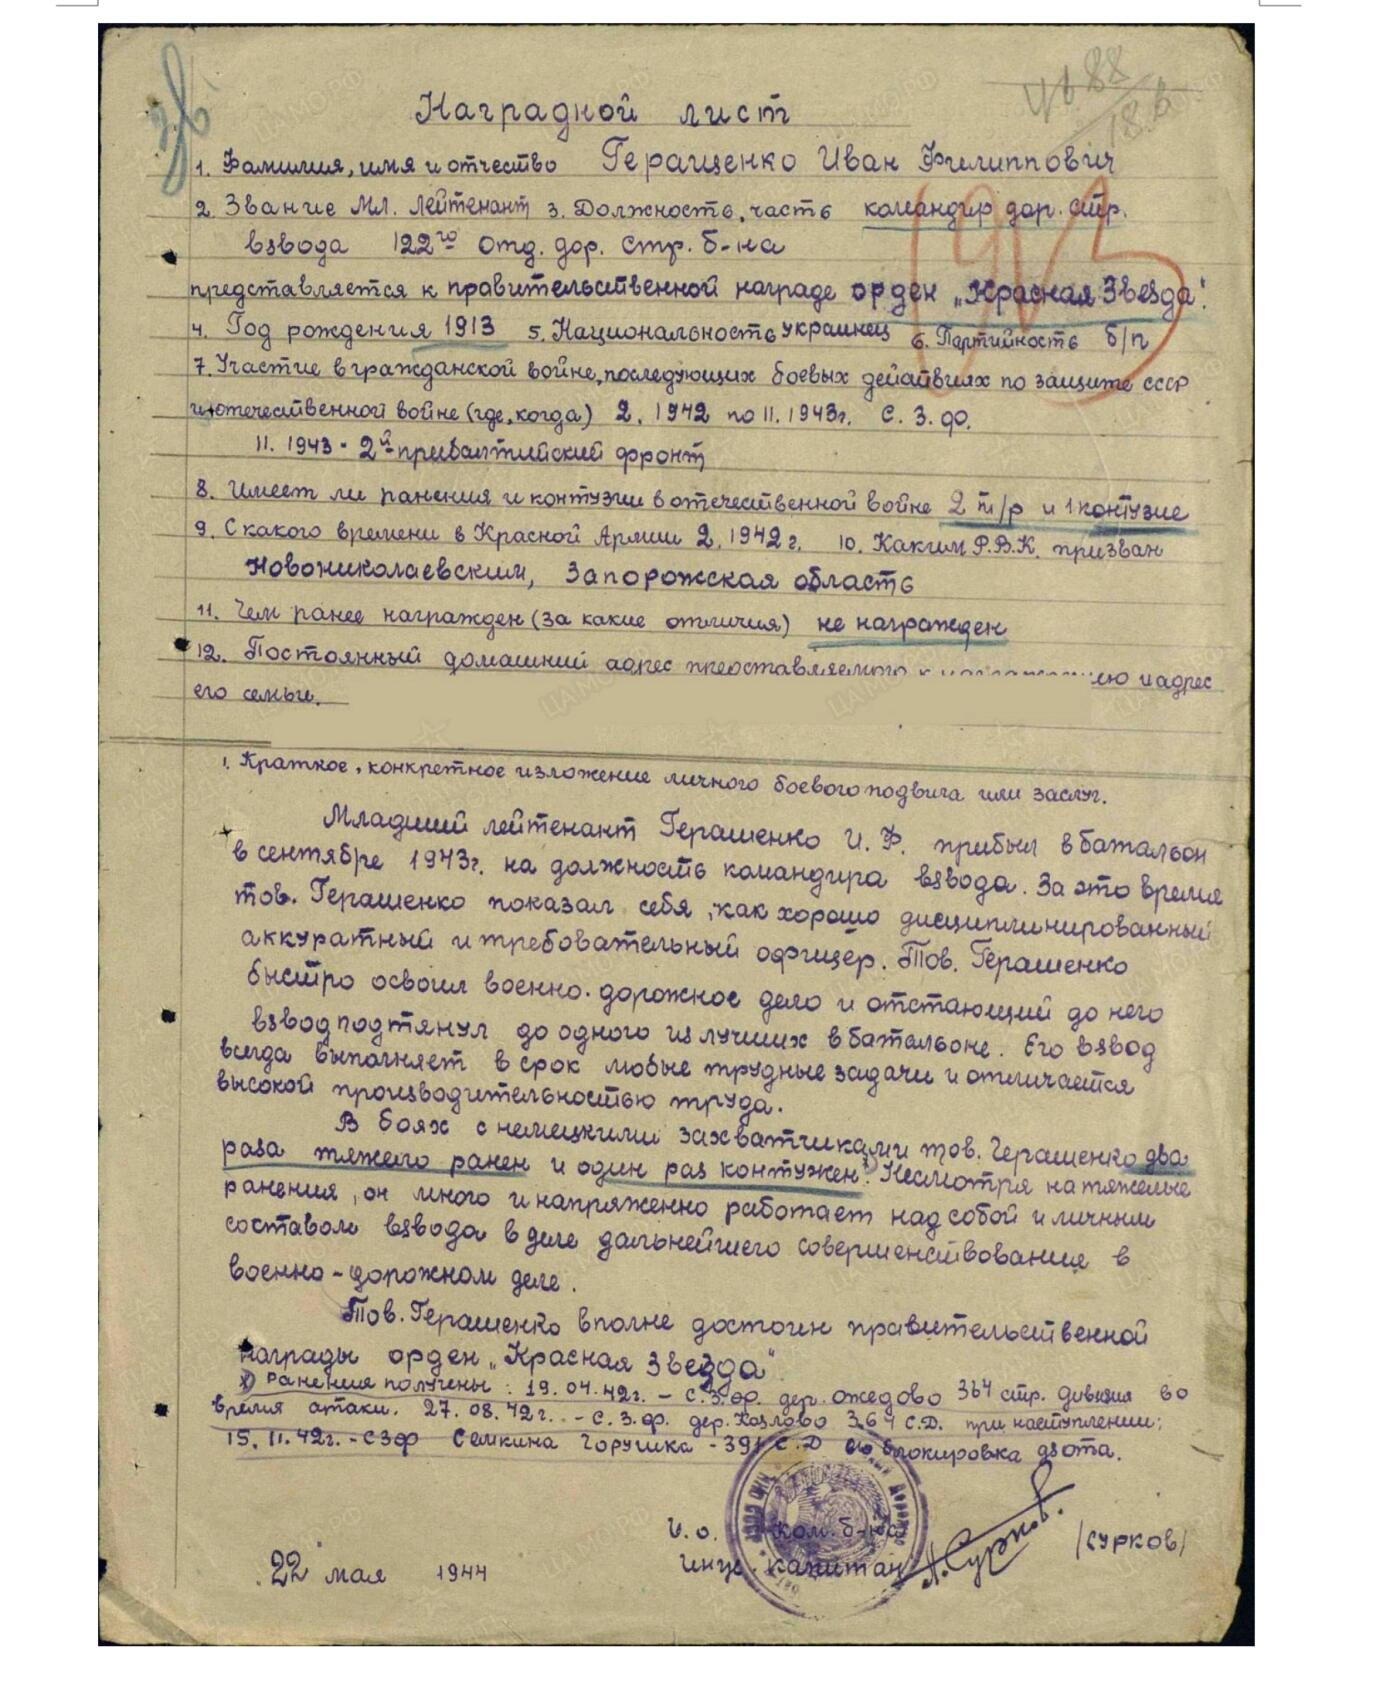 Наградной лист
1. Фамилия, имя и отчество Геращенко Иван Филиппович
2. Звание Мл. лейтенант 3. Должность, часть командир дор. стр.
взвода 122го отд. дор. стр. б-на
представляется к правительственной награде орден „Красная Звезда".
4. Год рождения 1913 5. Национальность украинец 6. Партийность б/п
7. Участие в гражданской войне, последующих боевых действиях по защите СССР
и отечественной войне (где, когда) 2. 1942 по 11. 1943г. С. З. ф.
11. 1943 - 2й прибалтийский фронт
8. Имеет ли ранения и контузии в отечественной войне 2 т/р и 1 контузие
9. С какого времени в Красной Армии 2. 1942 г. 10. Каким Р.В.К. призван
Новониколаевским, Запорожская область
11. Чем ранее награжден (за какие отличия) не награжден
12. Постоянный домашний адрес представляемого к и адрес
его семьи.
1. Краткое, конкретное изложение личного боевого подвига или заслуг.
Младший лейтенант Герашенко И. Ф. прибыл в батальон
в сентябре 1943г. на должность командира взвода. За это время
тов. Герашенко показал себя, как хорошо дисциплинированный
аккуратный и требовательный офицер. Тов. Герашенко
быстро освоил военно-дорожное дело и отстающий до него
взвод подтянул до одного из лучших в батальоне. Его взвод
всегда выполняет в срок любые трудные задачи и отличается
высокой производительностью труда.
В боях с немецкими захватчиками тов. Герашенко два
раза тяжело ранен и один раз контужен. Несмотря на тяжелые
ранения, он много и напряженно работает над собой и личным
составом взвода в деле дальнейшего совершенствования в
военно-дорожном деле.
Тов. Герашенко вполне достоин правительственной
награды орден „Красная Звезда"
Ранения получены: 19.04.42г. - С.З.ф. дер. Ожедово 364 стр. дивизия во
время атаки. 27.08.42г. - С.З.ф. дер. Козлово 364 С.Д. при наступлении;
15.11.42г. - СЗФ Семкина Горушка - 391 С.Д блокировка дзота.
И.о. ком. б-на
Инж. капитан А. Сурков. /Сурков/
22 мая 1944